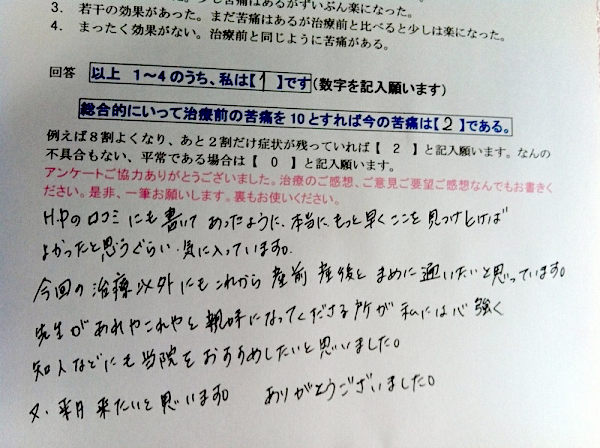 少し苦痛はあるがずいぶん楽になった。
3. 若干の効果があった。まだ苦痛はあるが治療前と比べると少しは楽になった。
4. まったく効果がない。治療前と同じように苦痛がある。
回答 以上 1～4のうち、私は【 1 】です(数字を記入願います)
総合的にいって治療前の苦痛を10とすれば今の苦痛は【 2 】である。
例えば8割よくなり、あと2割だけ症状が残っていれば【 2 】と記入願います。なんの
不具合もない、平常である場合は【 0 】と記入願います。
アンケートご協力ありがとうございました。治療のご感想、ご意見ご要望ご感想なんでもお書きく
ださい。是非、一筆お願いします。裏もお使いください。
H.Pの口コミにも書いてあったように、本当に、もっと早くここを見つけとけば
よかったと思うぐらい気に入っています。
今回の治療以外にもこれから産前産後とまめに通いたいと思っています。
先生があれやこれやと親味になってくださる所が私には心強く
知人などにも当院をおすすめしたいと思いました。
又、来月来たいと思います。 ありがとうございました。